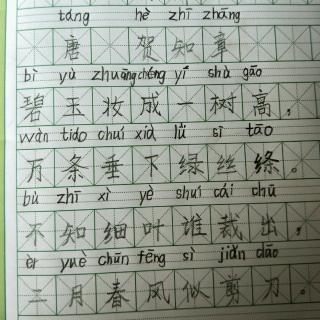 táng hè zhī zhāng
唐 贺知章
bì yù zhuāng chéng yí shù gāo
碧玉妆成一树高，
wàn tiáo chuí xià lǜ sī tāo
万条垂下绿丝绦。
bù zhī xì yè shuí cái chū
不知细叶谁裁出，
èr yuè chūn fēng sì jiǎn dāo
二月春风似剪刀。